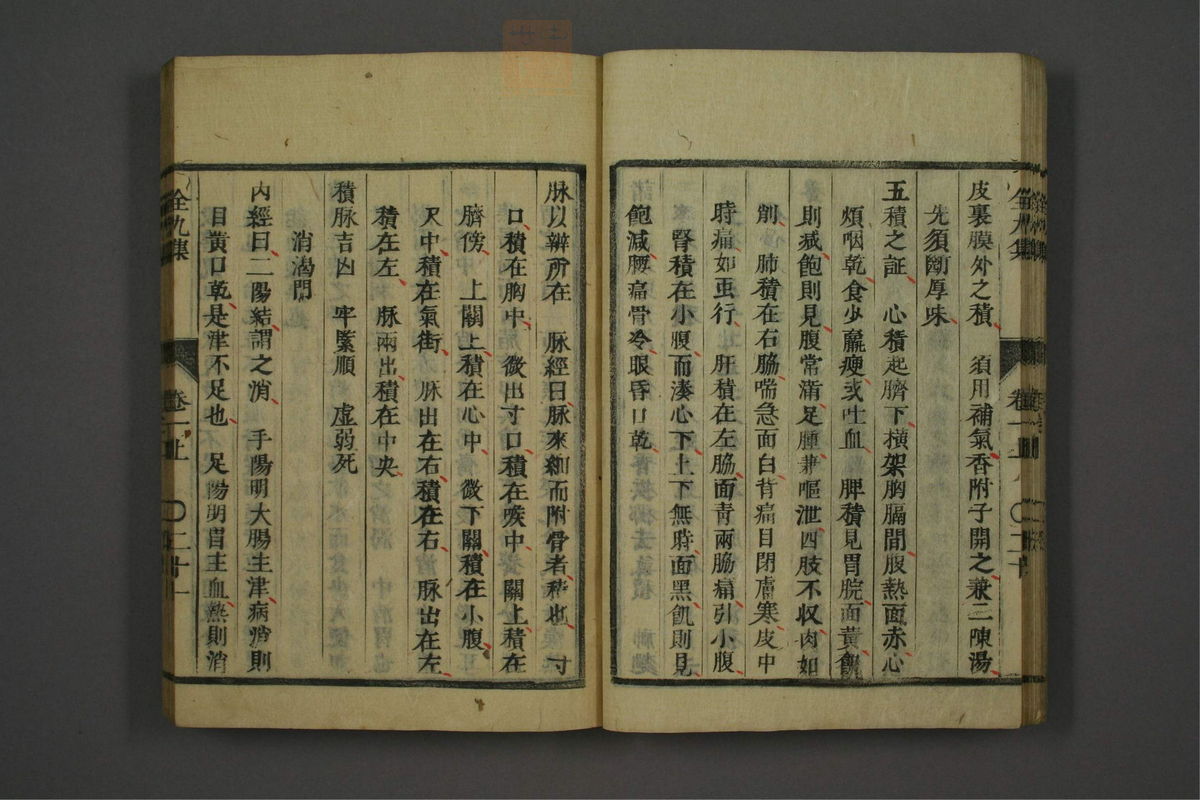 皮裏膜外之積　須用補氣香附子開之兼二陳湯
先須斷厚味
五積之証　心積起臍下橫架胸膈間腹熱面赤心
煩咽乾食少羸瘦或吐血　脾積見胃脘面黃飢
則减飽則見腹常滿足腫兼嘔泄四肢不収肉如
削　肺積在右脇喘急面白背痛目閉膚寒皮中
時痛如虫行　肝積在左脇面青兩脇痛引小腹
腎積在小腹而湊心下上下無時面黑飢則見
飽減腰痛骨冷眼昏口乾
全九集　卷一上　二十
脉以辨所在　脉經曰脉來細而附骨者積也　寸
口積在胸中　微出寸口積在喉中　關上積在
臍傍　上關上積在心中　微下關積在小腹
尺中積在氣街　脉出在右積在右　脉出在左
積在左　脉兩出積在中央
積脉吉凶　牢緊順　虛弱死
消渴門
內經曰二陽結謂之消　手陽明大腸主津病消則
目黃口乾是津不足也　足陽明胃主血熱則消
全九集　卷一上　二十一